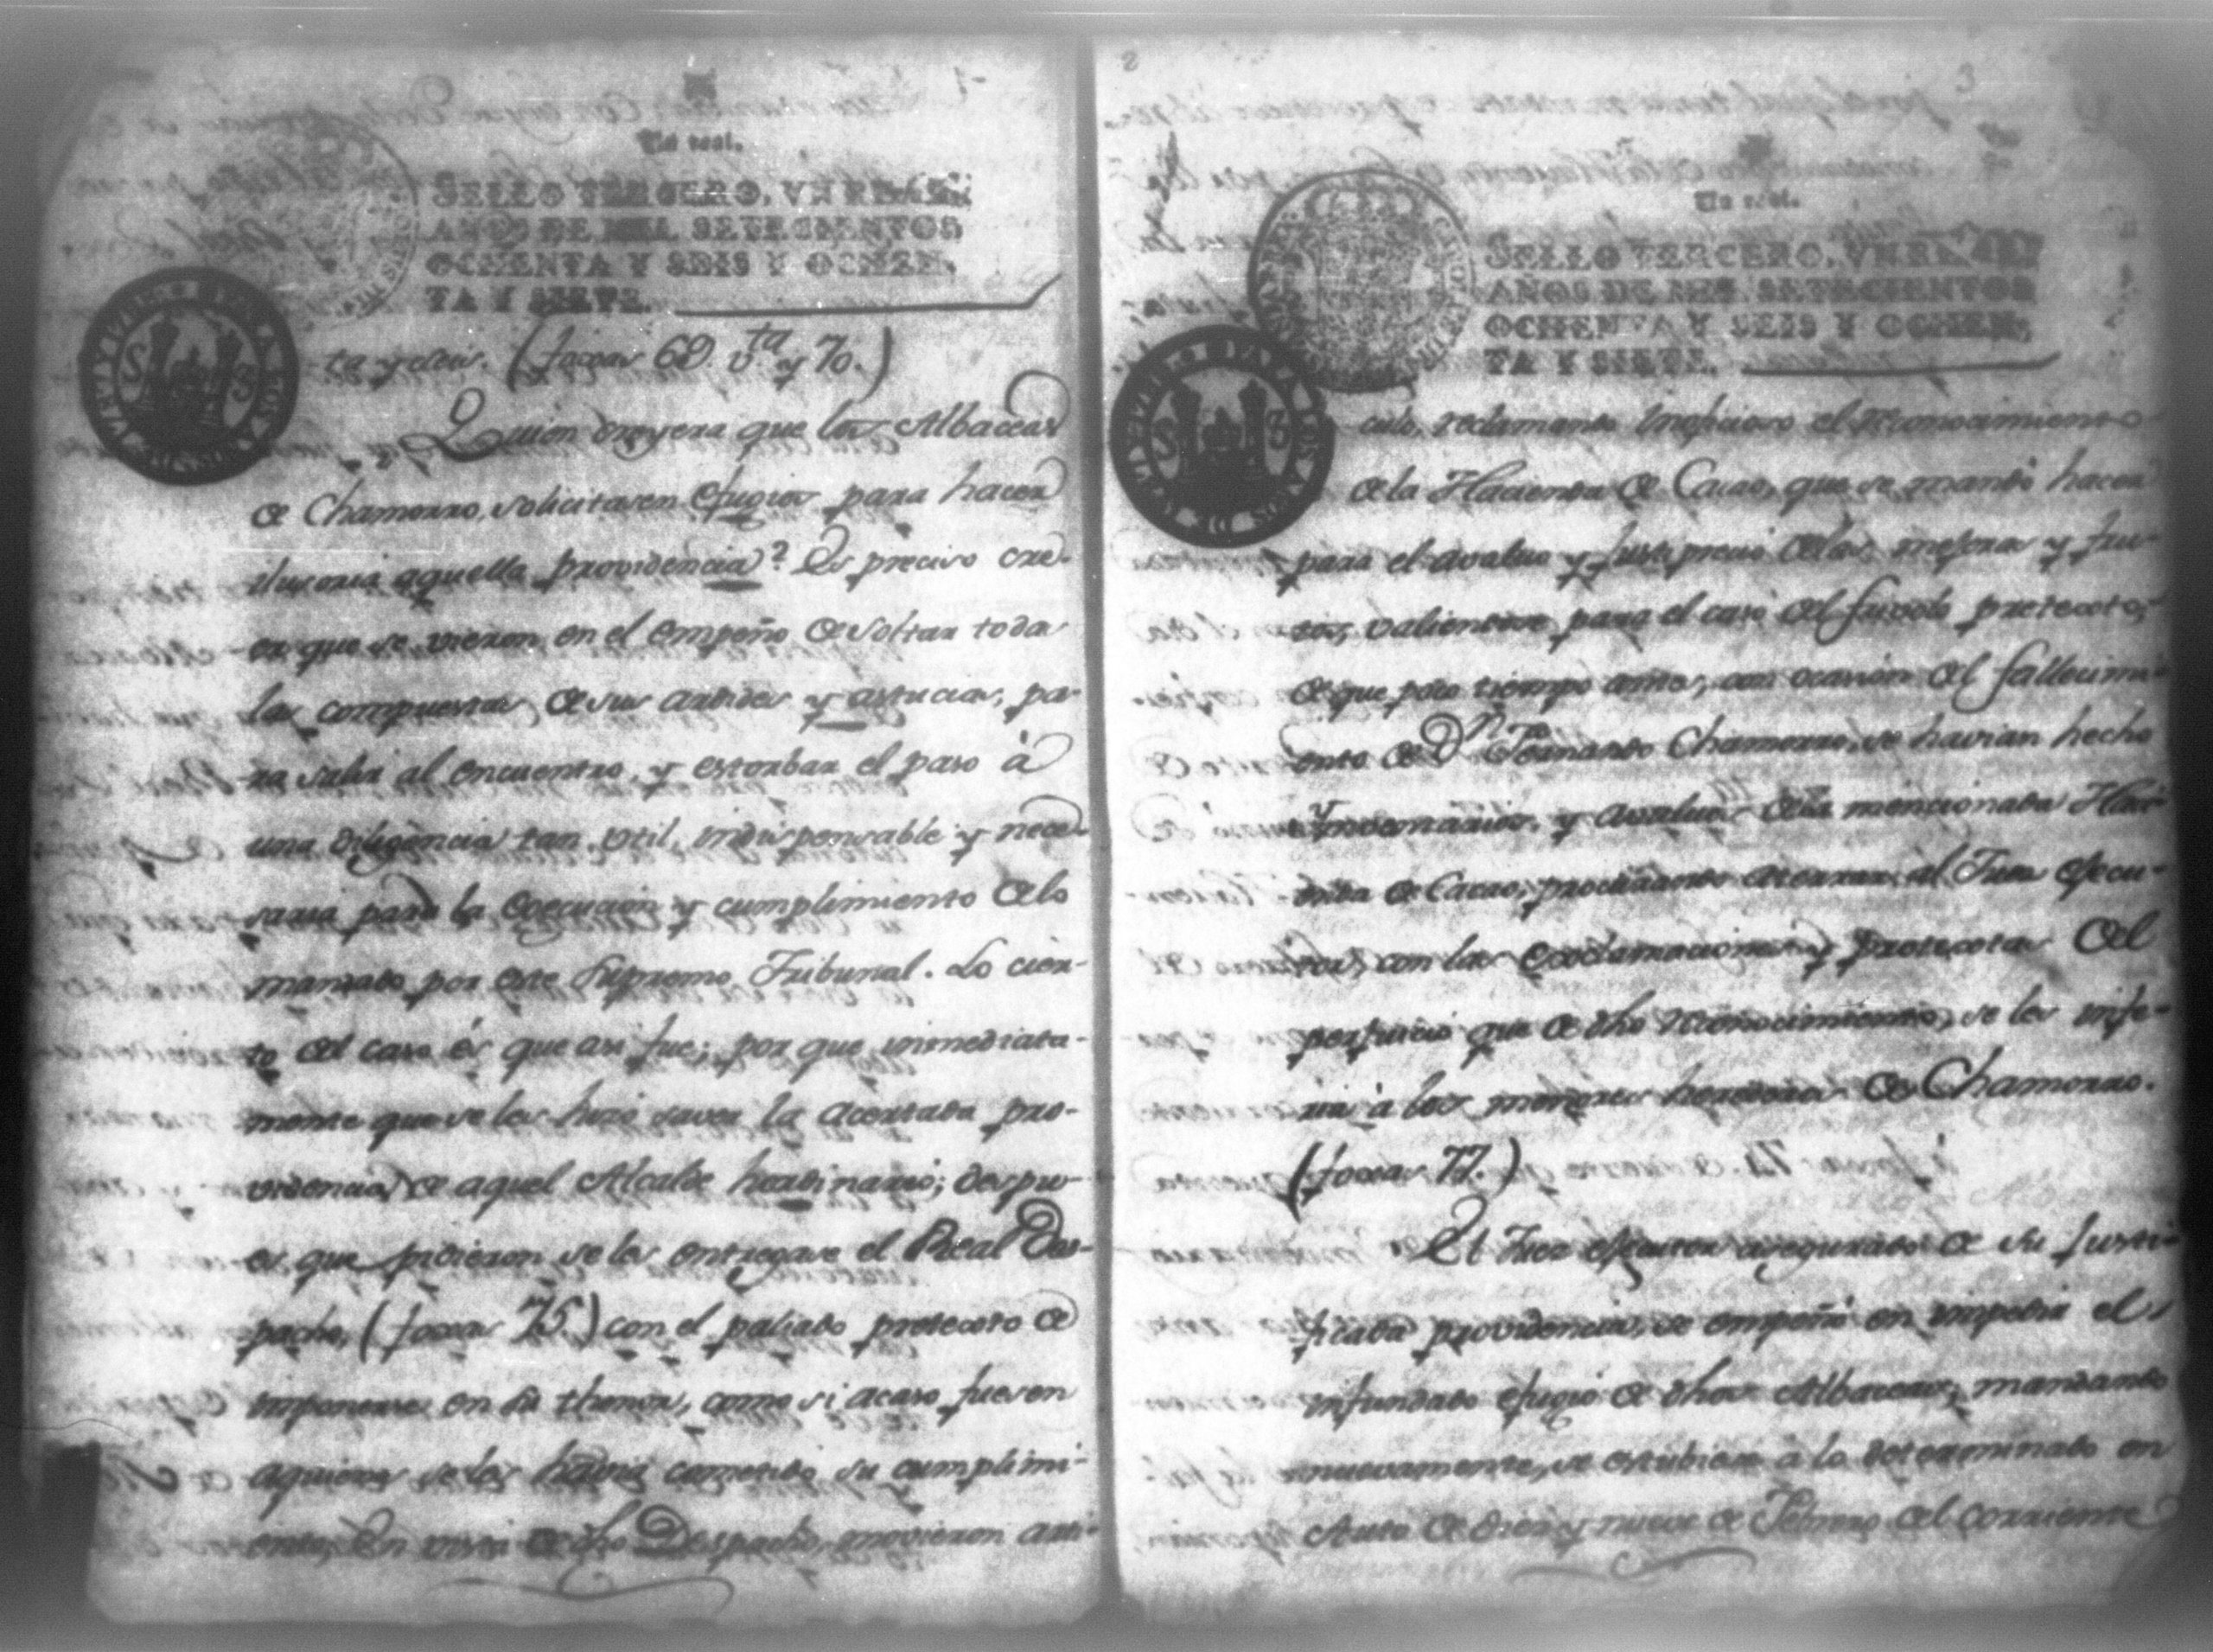 Un real.
SELLO TERCERO, VN REAL,
AÑOS DE MIL SETECIENTOS
OCHENTA Y SEIS Y OCHEN-
TA Y SIETE.
ta y seis. (foxas 69. vta y 70.)
Quien creyera que los Albaceas
de Chamorro, solicitasen efugios para hacer
ilusoria aquella providencia? Es preciso cre-
er que se vieron en el empeño de soltar toda
las compuertas de sus ardides y astucias, pa-
ra salir al encuentro, y estorbar el paso à
una diligencia tan vtil, indispensable y nece-
saria para la execucion y cumplimiento de lo
mandado por este Supremo Tribunal. Lo cier-
to del caso és que asi fue; por que inmediata-
mente que se les hizo saver la acertada pro-
videncia de aquel Alcalde hordinario; despu-
es que pidieron se les entregase el Real Des-
pacho, (foxas 75.) con el paliado protexto de
imponerse en su thenor, como si acaso fuesen
aquienes se les havia cometido su cumplimi-
ento, En vista de dho Despacho, movieron arti-
2
3
Un real.
SELLO TERCERO, VN REAL,
AÑOS DE MIL SETECIENTOS
OCHENTA Y SEIS Y OCHEN-
TA Y SIETE.
culo, reclamando inoficioso el reconocimiento
de la Hacienda de Cacao, que se mandó hacer
para el avaluo y justi precio de las mejoras y fru-
tos, valiendose para el caso del frivolo pretecsto,
de que poco tiempo antes, con ocasion del fallecimi-
ento de Dn Fernando Chamorro, se havian hecho
Ynventarios, y avaluos de la mencionada Haci-
enda de Cacao, procurando aterrar al Juez efecu-
tor, con las exclamaciones y protextas del
perjuicio que de dho reconocimiento, se les infe-
ria à los menores herederos de Chamorro.
(foxas 77.)
El Juez efecutor asegurado de su justi-
ficada providencia, se empeñó en impedir el
infundado efugio de dhos Albaceas, mandando
nuevamente, se estubiese à lo determinado en
Auto de diez y nueve de Febrero del corriente